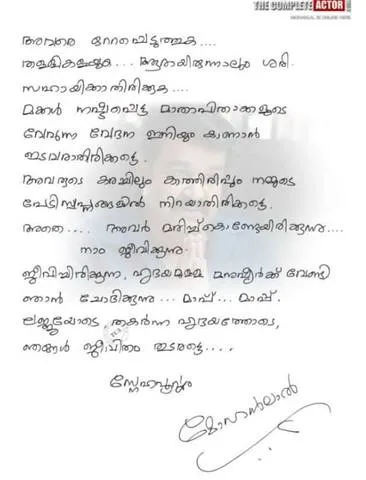 THE COMPLETE ACTOR
.COM
MOHANLAL IS ONLINE HERE
അവരെ ഒറ്റപ്പെടുത്തുക....
തള്ളിക്കളയുക... ആരായിരുന്നാലും ശരി.
സഹായിക്കാതിരിക്കുക....
മക്കൾ നഷ്ടപ്പെട്ട മാതാപിതാക്കളുടെ
വേവുന്ന വേദന ഇനിയും കാണാൻ
ഇടവരാതിരിക്കട്ടെ.
അവരുടെ കരച്ചിലും കാത്തിരിപ്പും നമ്മുടെ
പേടിസ്വപ്നങ്ങളിൽ നിറയാതിരിക്കട്ടെ.
അതെ.... അവർ മരിച്ചുകൊണ്ടേയിരിക്കുന്നു....
നാം ജീവിക്കുന്നു.
ജീവിച്ചിരിക്കുന്ന, ഹൃദയമുള്ള മനുഷ്യർക്ക് വേണ്ടി
ഞാൻ ചോദിക്കുന്നു... മാപ്പ്... മാപ്പ്.
ലജ്ജയോടെ തകർന്ന ഹൃദയത്തോടെ,
ഞങ്ങൾ ജീവിതം തുടരട്ടെ....
സ്നേഹപൂർവ്വം
മോഹൻലാൽ